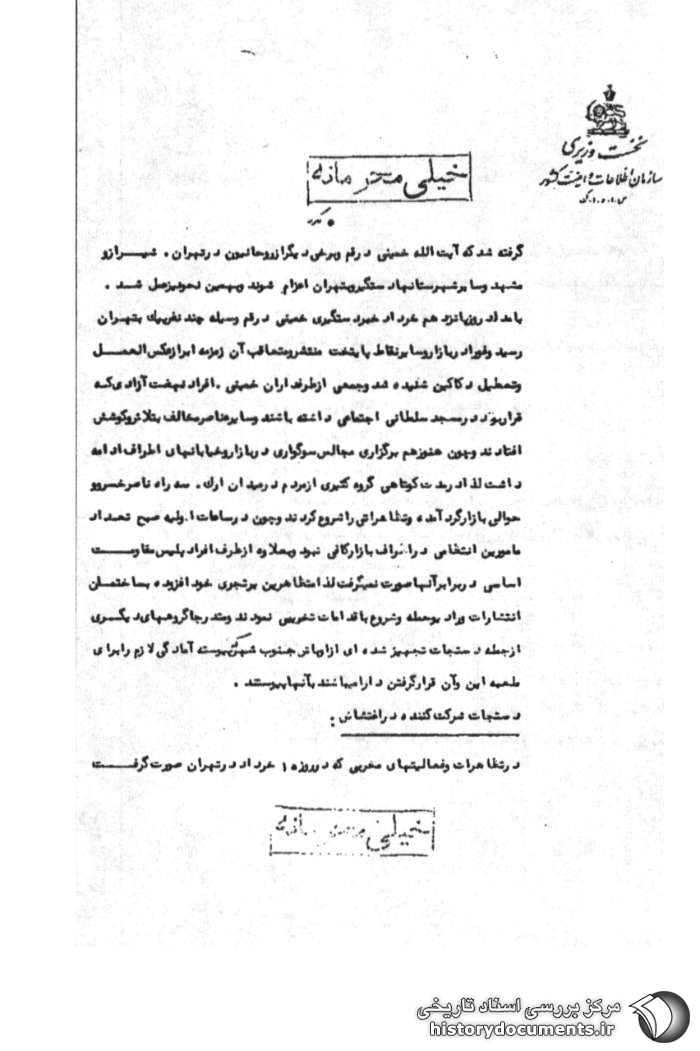 نخست وزیری
سازمان اطلاعات و امنیت کشور
س.ا.و.ا.ک
خیلی محرمانه
گرفته شد که آیت الله خمینی در قم و برخی دیگر از روحانیون در تهران . شیراز و
مشهد و سایر شهرستانها دستگیر و بتهران اعزام شوند و بهمین نحو نیز عمل شد .
بامداد روز پانزدهم خرداد خبر دستگیری خمینی در قم وسیله چند نفر پیک بتهران
رسید و فورا در بازار و سایر نقاط پایتخت منتشر و متعاقب آن زمزمه ابراز عکس العمل
و تعطیل دکاکین شنیده شد و جمعی از طرفداران خمینی . افراد نهضت آزادی که
قرار بود در مسجد سلطانی اجتماعی داشته باشند و سایر عناصر مخالف بتلاش و کوشش
افتادند و چون هنوز هم برگزاری مجالس سوگواری در بازار و خیابانهای اطراف ادامه
داشت لذا در مدت کوتاهی گروه کثیری از مردم در میدان ارک . سه راه ناصر خسرو و
حوالی بازار گرد آمده و تظاهراتی را شروع کردند و چون در ساعات اولیه صبح تعداد
مامورین انتظامی در اطراف بازار کافی نبود و بعلاوه از طرف افراد پلیس مقاومت
اساسی در برابر آنها صورت نمیگرفت لذا متظاهرین بر تجری خود افزوده بساختمان
انتشارات رادیو حمله و شروع باقدامات تخریبی نمودند و متدرجا گروههای دیگری
از جمله دستجات تجهیز شده ای از اوباش جنوب شهر که پیوسته آمادگی لازم را برای
طعمه این و آن قرار گرفتن دارا میباشند بآنها پیوستند .
دستجات شرکت کننده در اغتشاش :
در تظاهرات و فعالیتهای مخربی که در روز ۱۵ خرداد در تهران صورت گرفت
خیلی محرمانه
مرکز بررسی اسناد تاریخی
historydocuments.ir